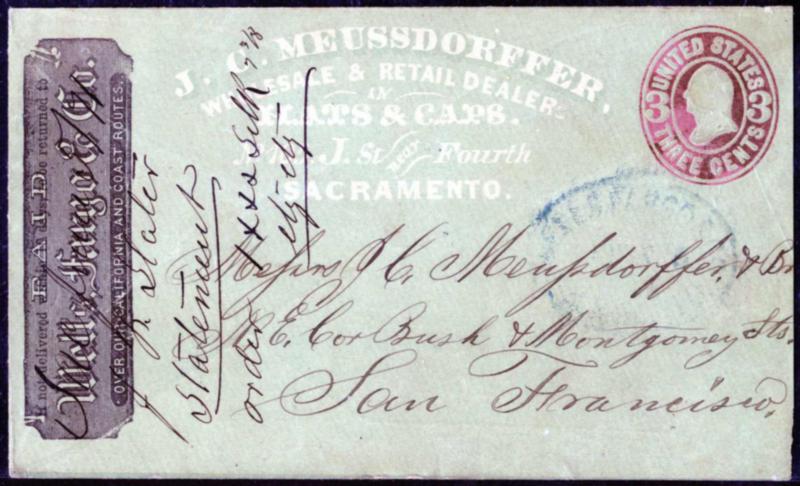 J. C. MEUSSDORFFER,
WHOLESALE & RETAIL DEALER
IN
HATS & CAPS.
J. St near Fourth
SACRAMENTO.
UNITED STATES
3 3
THREE CENTS
If not delivered within be returned to
PAID
Wells, Fargo & Co.
OVER OUR CALIFORNIA AND COAST ROUTES.
Slater
Statement
order Silk 7 3/8
Messrs J. C. Meussdorffer, & Bro
N. E. Cor Bush & Montgomey Sts.
San Francisco,